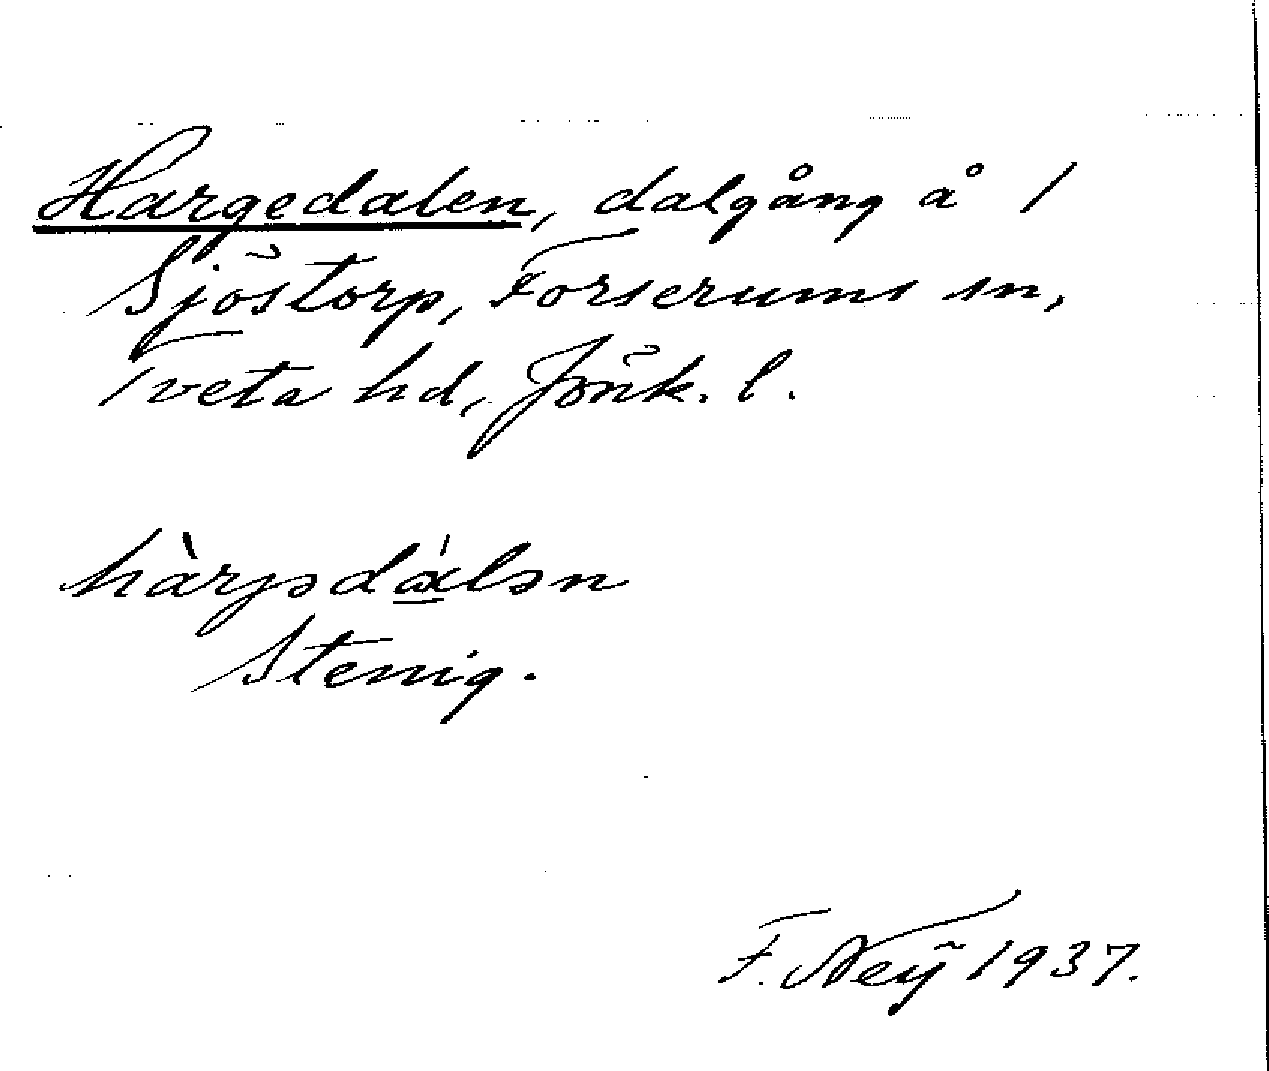 Hargedalen, dalgång å 1
Sjöstorp, Forserums sn,
Tveta hd, Jönk. l.
hàrjədálən
Stenig.
F. Neÿ 1937.